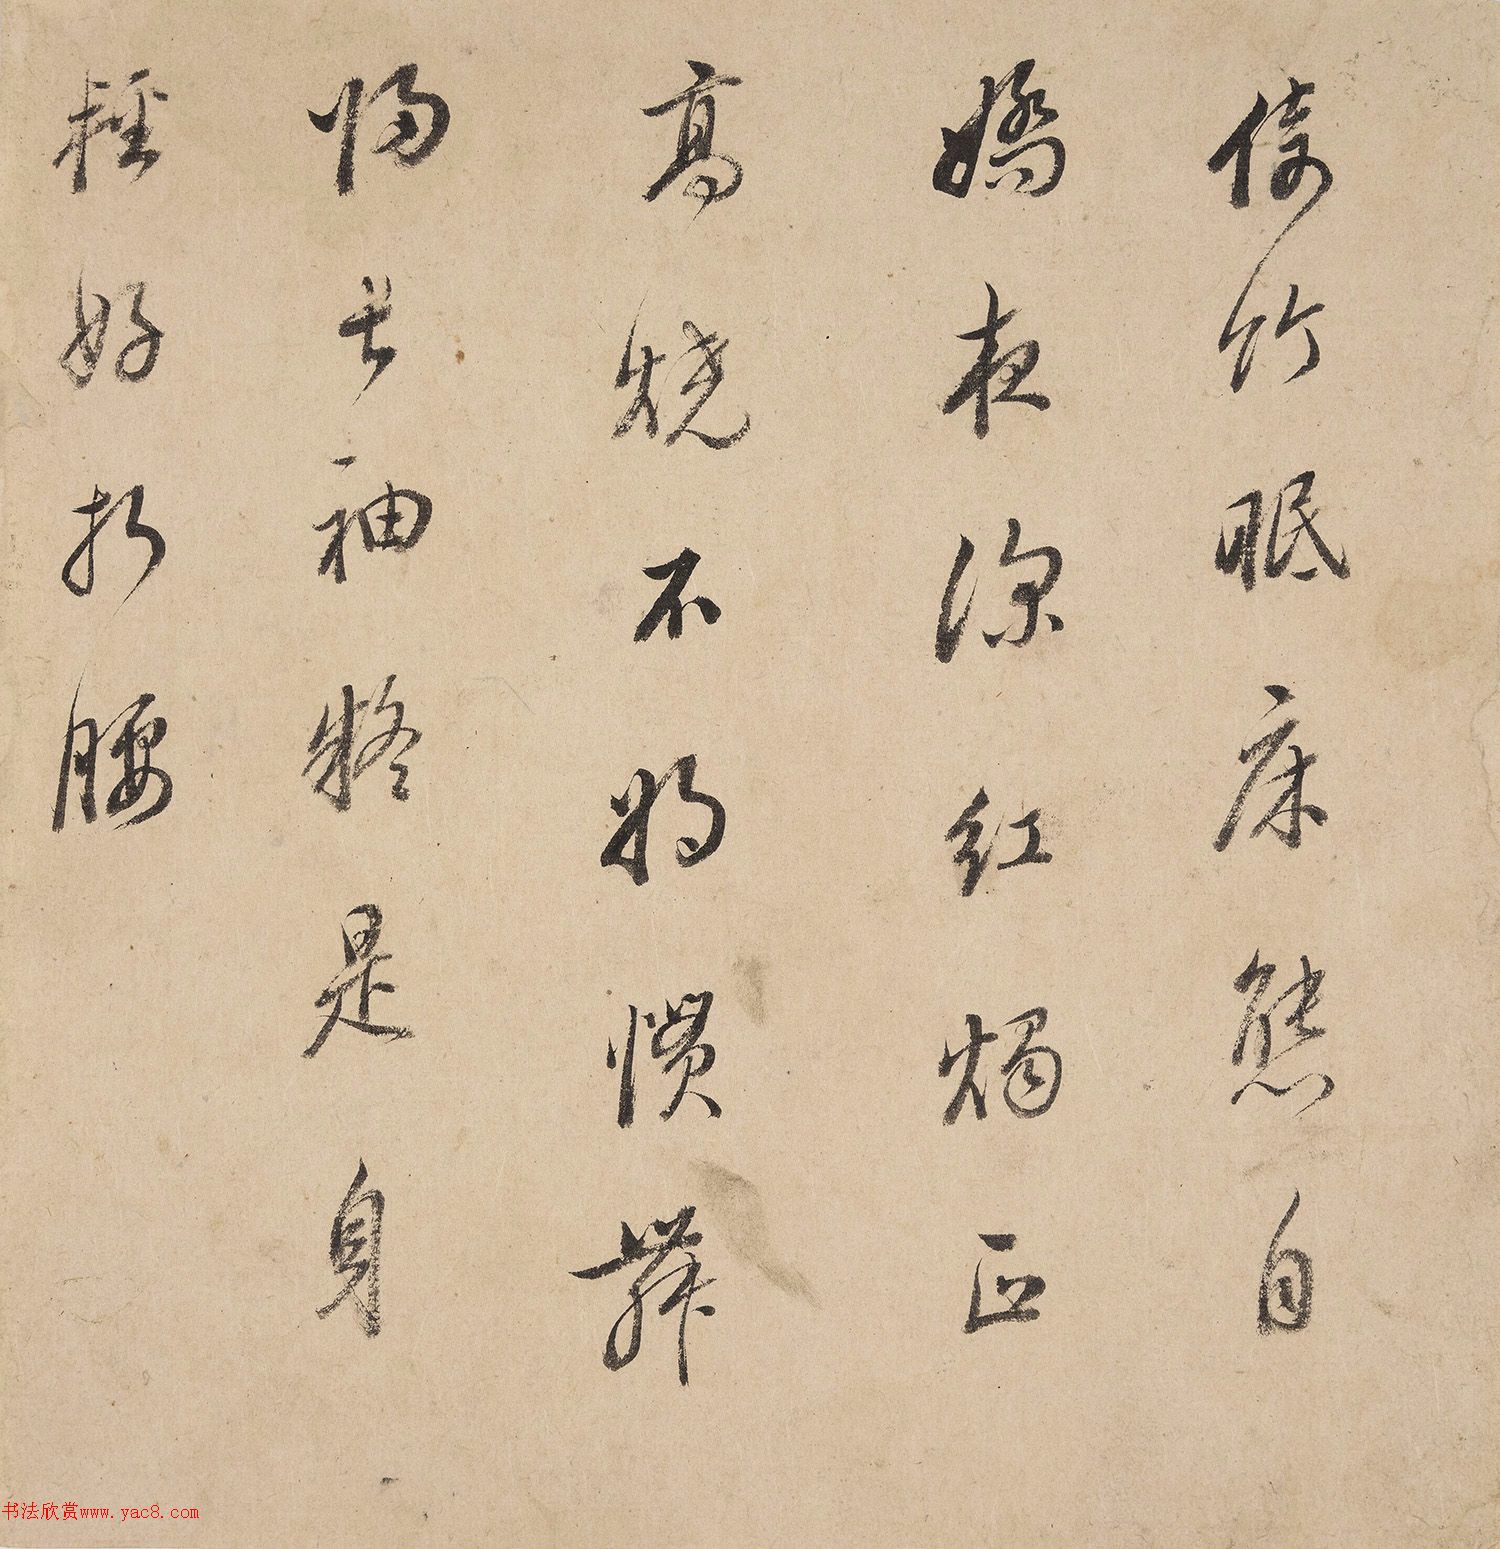 倚竹眠床態自
嬌夜深紅燭正
高燒不將慣舞
歸長袖疑是身
輕好折腰
书法欣赏www.yac8.com